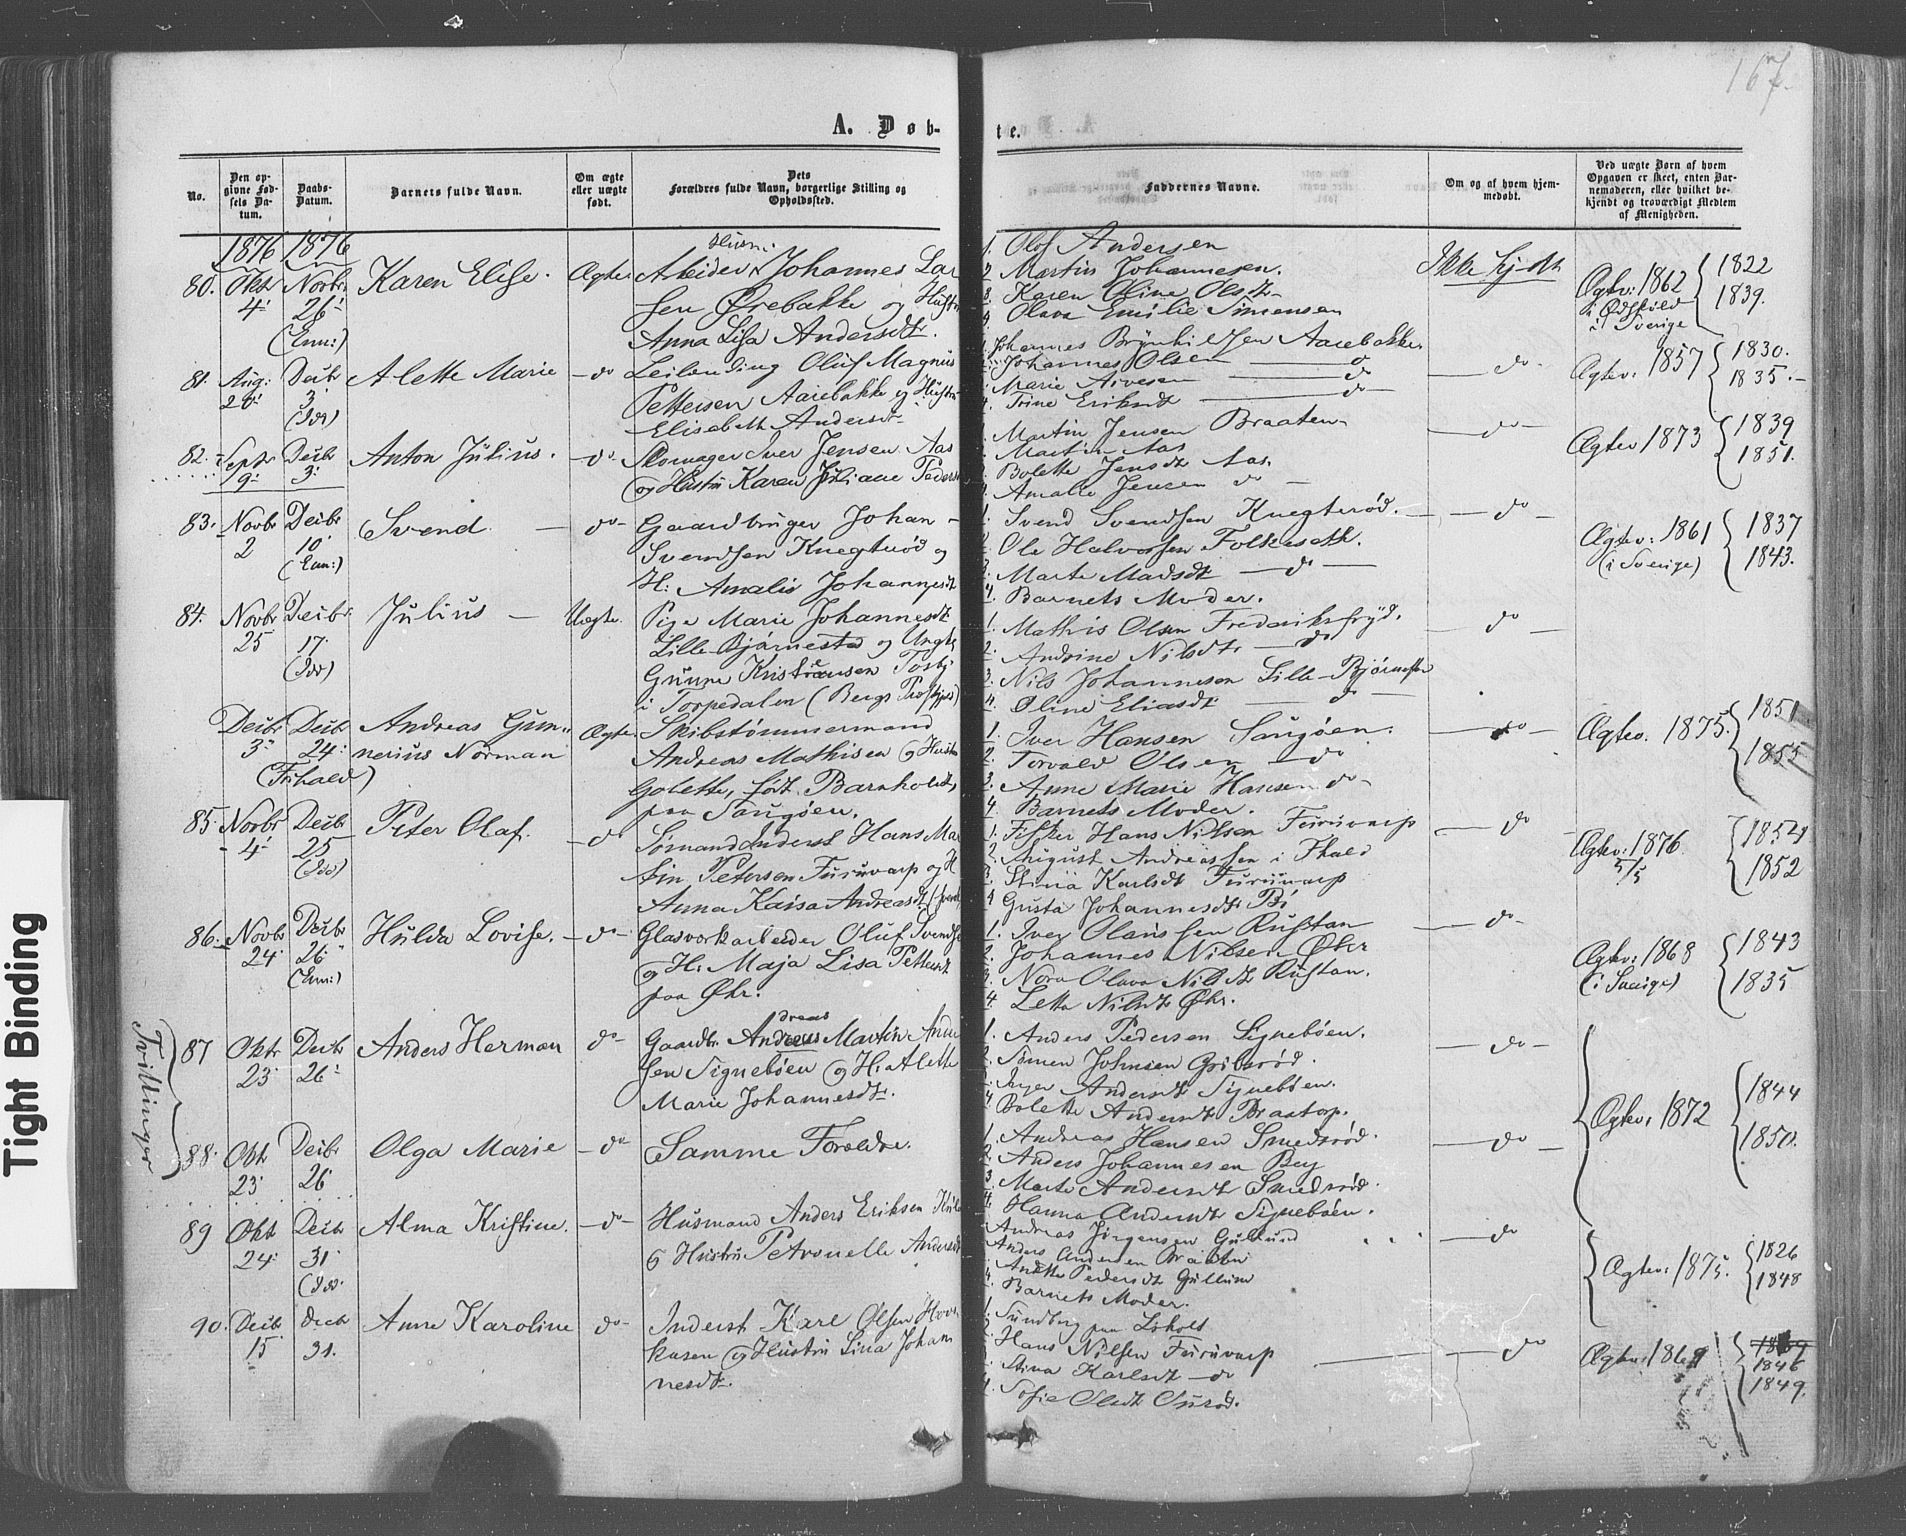 167.
A. Døb-
te.
No.
Den op-
givne Fød-
sels Da-
tum.
Daabs-
Datum.
Barnets fulde Navn.
Om ægte
eller uægte
født.
Dets
Forældres fulde Navn, borgerlige Stilling og
Opholdssted.
Faddernes Navne.
Om og af hvem hjem-
medøbt.
Ved uægte Børn af hvem
Opgaven er skeet, enten Bar-
nemoderen, eller hvilket be-
kjendt og troværdigt Medlem
af Menigheden.
1876 1876
80. Okt 4 Novbr 26 (Enn:) Karen Elise. Ægte
Arbeider Johannes Lar
sen Ørebakke og Hustru
Anna Lisa Andersdtr.
1. Olof Andersen
2. Martin Johannesen.
3. Karen Oline Olsdt
4. Olava Emilie Simensen
Ikke hjdt
Ægtev: 1862 i Sverige 1822 1839.
81. Aug: Decbr 3 (Idd) Alette Marie - do
Leilending Oluf Magnus
Pettersen Aarebakke og Hustru
Elisabeth Andersdt
Johannes Aarebakke
Johannes Olsen do
Marie do
4. Trine Eriksdt do
do
Ægtev: 1857 1830. 1835.
82. Septr 9 Decbr 3 Anton Julius. - do
Skomager Iver Jensen Aas
og Hustru Karen Juliane Peders
1. Martin Jensen Braaten
Martin Aas
3. Bolette Jensdt Aas
4. Amalie Jensen do
do
Ægtev 1873 1839 1851.
83. Novbr 2 Decbr 10 (Enn:) Svend - do
Gaardbruger Johan
Svendsen Knegterød og
H: Amalie Johannesdt
1. Svend Svendsen Knegterød.
2. Ole Halvorsen Folkeseth.
3. Marte Madsdt do
4. Barnets Moder.
do
Ægtev: 1861 (i Sverige) 1837 1843.
84. Novbr 25 Decbr 17 (Idd) Julius - Uægte.
Pige Marie Johannesdt
Lille Bjørnestad og Ungk
Gunne Kristiansen
i Torpedalen (Bergs Præstgj)
1. Mathis Olsen Frederiksfryd.
2. Andrine Nilsdt do
3. Nils Johannesen Lille-Bjørnestad
4. Oline Eliasdt do
do
Decbr 3 Decbr 24 (Frhald) Andreas Gun-
nerius Norman Ægte
Skibstømmermand
Andreas Mathisen og Hustru
Golette, født Barnholdt
paa Saugøen.
1. Iver Hansen Saugøen.
2. Torvald Olsen do
3. Anne Marie Hansen do
4. Barnets Moder.
do
Ægtev. 1875. 1851 1855
85. Novbr 4 Decbr 25 (Idd) Peter Olaf. - do
Sømand Inderst Hans Mar
tin Petersen Furuvarp og H
Anna Kaisa Andreasdt
1. Fisker Hans Nilsen Furuvarp
2. August Andreassen i Fhald
3. Stina Karlsdt Furuvarp
4. Gusta Johannesdt
do
Ægtev: 1876 5/5 1852
86. Novbr 24 Decbr 26 (Enn:) Hulda Lovise. - do
Glasværkarbeider Oluf Svends
og H: Maja Lisa Pettersdt
paa Øhr.
1. Iver Olaussen Rustan
2. Johannes Nilsen Øhr
3. Nora Olava Nilsdt Rustan.
4. Letta Nilsdt Øhr.
do
Ægtev: 1868 (i Sverige) 1843 1835
Tvillinger
87 Oktr 23 Decbr 26 Anders Herman do
Gaardbr. Andreas Martin Ander
sen Signebøen og H: Alette
Marie Johannesdt.
1. Anders Pedersen Signebøen.
2. Simen Johnsen Gribsrød.
3. Inger Andersdt Signebøen.
4. Bolette Andersdt Braatorp.
do
Ægtev: 1872 1844 1850.
88. Okt 23 Decbr 26 Olga Marie - do
Samme Foreldre.
1. Andreas Hansen Smedsrød.
2. Anders Johannesen Berg
3. Marte Andersdt Smedsrød.
4. Hanna Andersdt Signebøen.
do
89 Okt 24 Decbr 31 (Idd. Alma Kristine. - do
Husmand Anders Eriksen
og Hustru Petronelle Andersdt
Andreas Jørgensen Gullund
Anders Andersen Braaten
Anette Pedersdt Gullund
4. Barnets Moder.
do
Ægtev: 1875. 1826 1848
90. Decbr 15 Decbr 31. Anne Karoline do
Inderst Karl Olsen
og Hustru Lina Johan
nesdt.
1. Sundberg paa
2. Hans Nilsen Furuvarp
3. Stina Karlsdt do
4. Sofie Olsdt
do
Ægtev: 1869 1846 1849.
Tight Binding